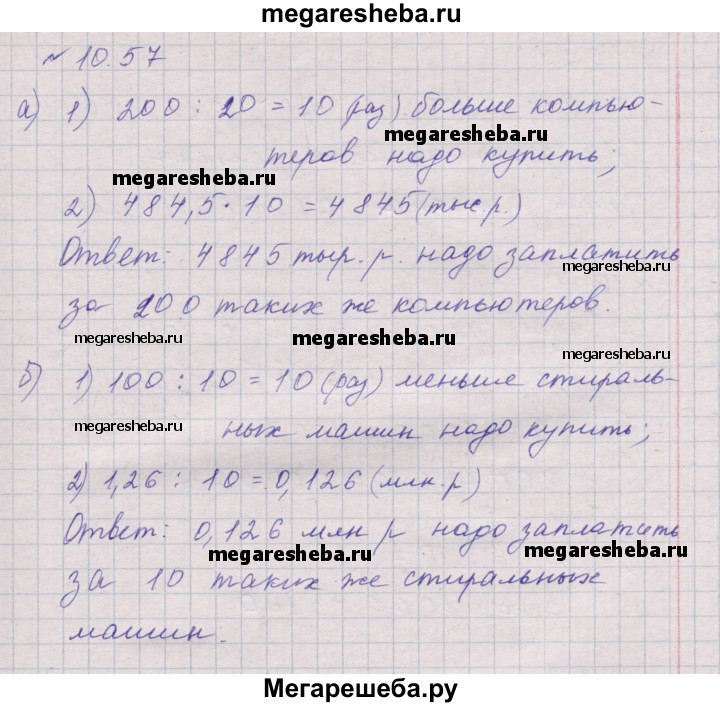 megaresheba.ru
№ 10.57
а) 1) 200 : 20 = 10 (раз) больше компью-
megaresheba.ru
теров надо купить;
megaresheba.ru
2) 484,5 · 10 = 4845 (тыс р.)
Ответ: 4845 тыр. р. надо заплатить
megaresheba.ru
за 200 таких же компьютеров.
megaresheba.ru megaresheba.ru
megaresheba.ru
б) 1) 100 : 10 = 10 (раз) меньше стираль-
megaresheba.ru
ных машин надо купить;
2) 1,26 : 10 = 0,126 (млн. р)
Ответ: 0,126 млн р надо заплатить
megaresheba.ru megaresheba.ru
за 10 таких же стиральных
машин.
Мегарешеба.ру